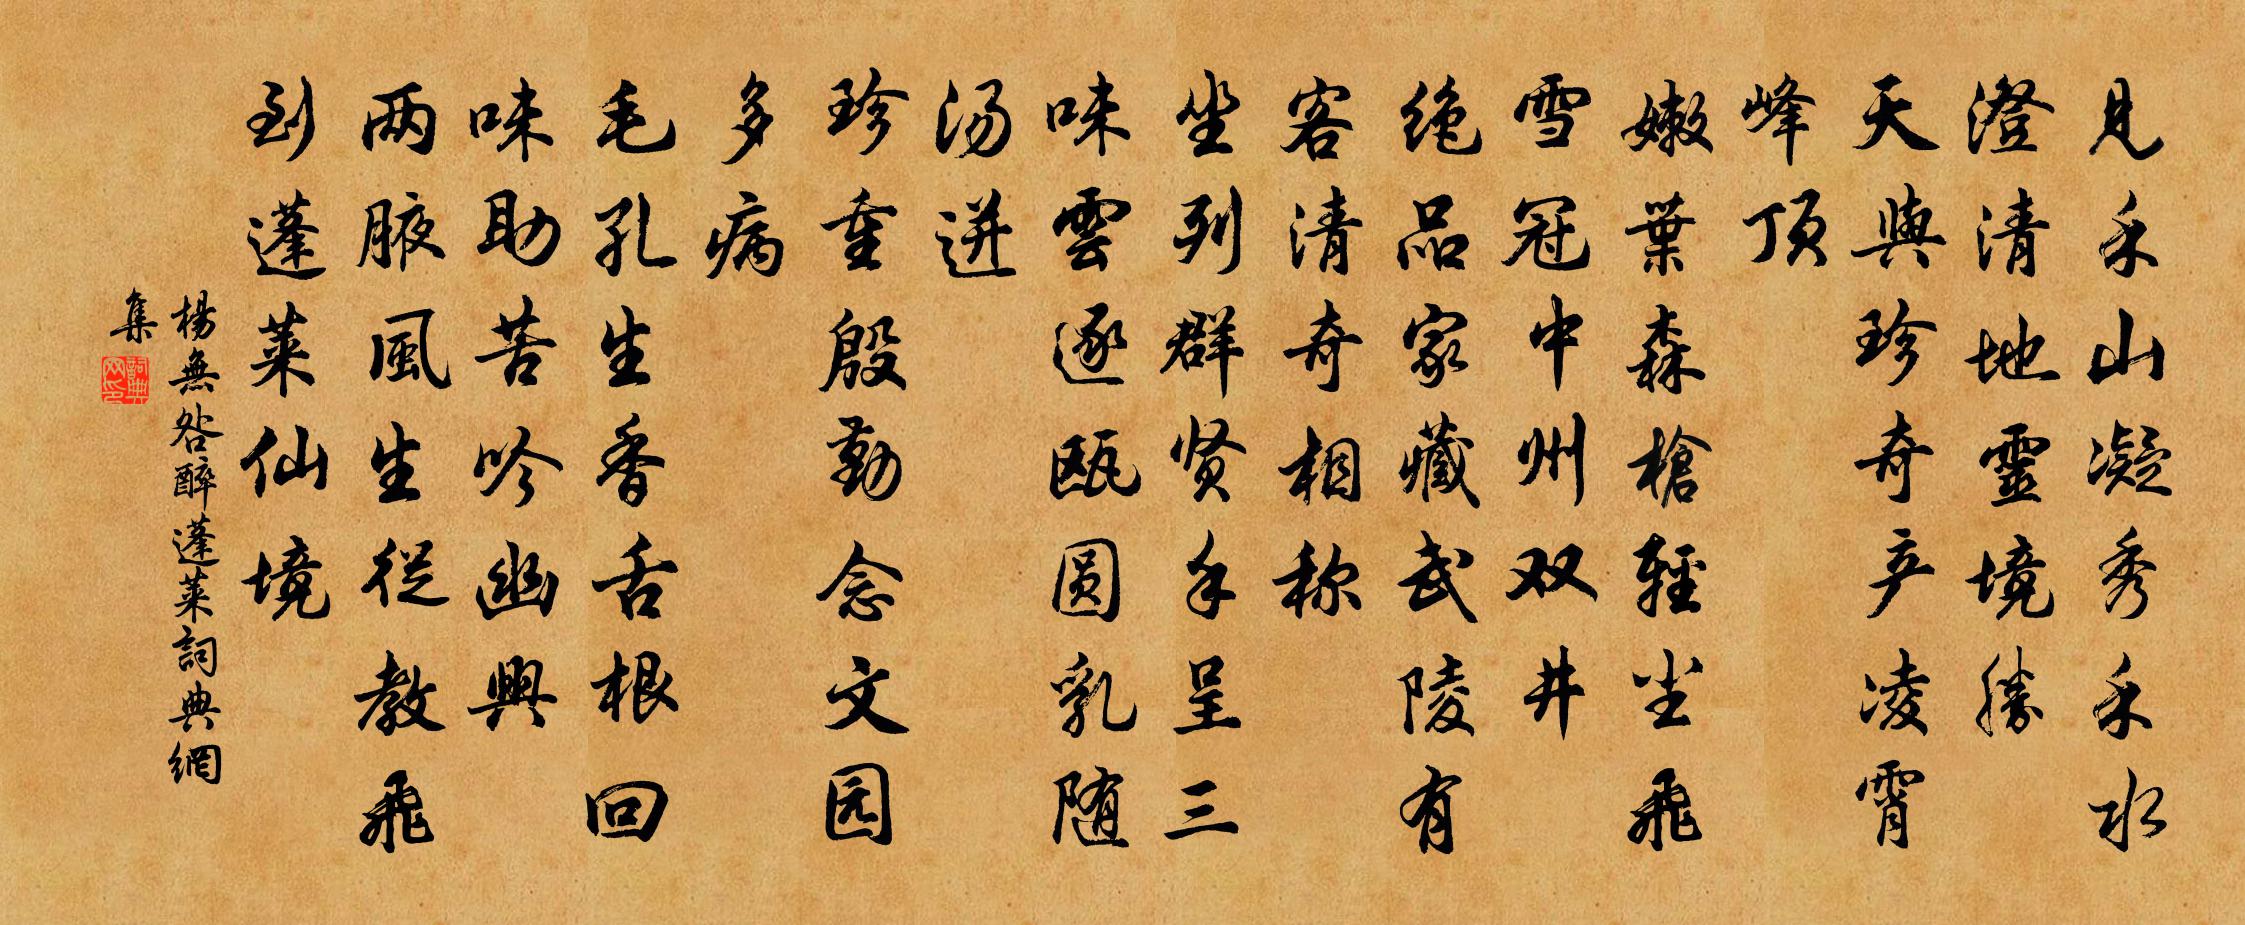 見禾山凝秀禾水
澄清地靈境勝
天與珍奇产凌霄
峰顶
嫩葉森槍輕尘飛
雪冠中州双井
绝品家藏武陵有
客清奇相称
坐列群贤手呈三
味雲逐瓯圆乳随
汤迸
珍重殷勤念文园
多病
毛孔生香舌根回
味助苦吟幽興
两腋風生從教飛
到蓬萊仙境
楊無咎醉蓬萊詞典網
集
詞典
网印